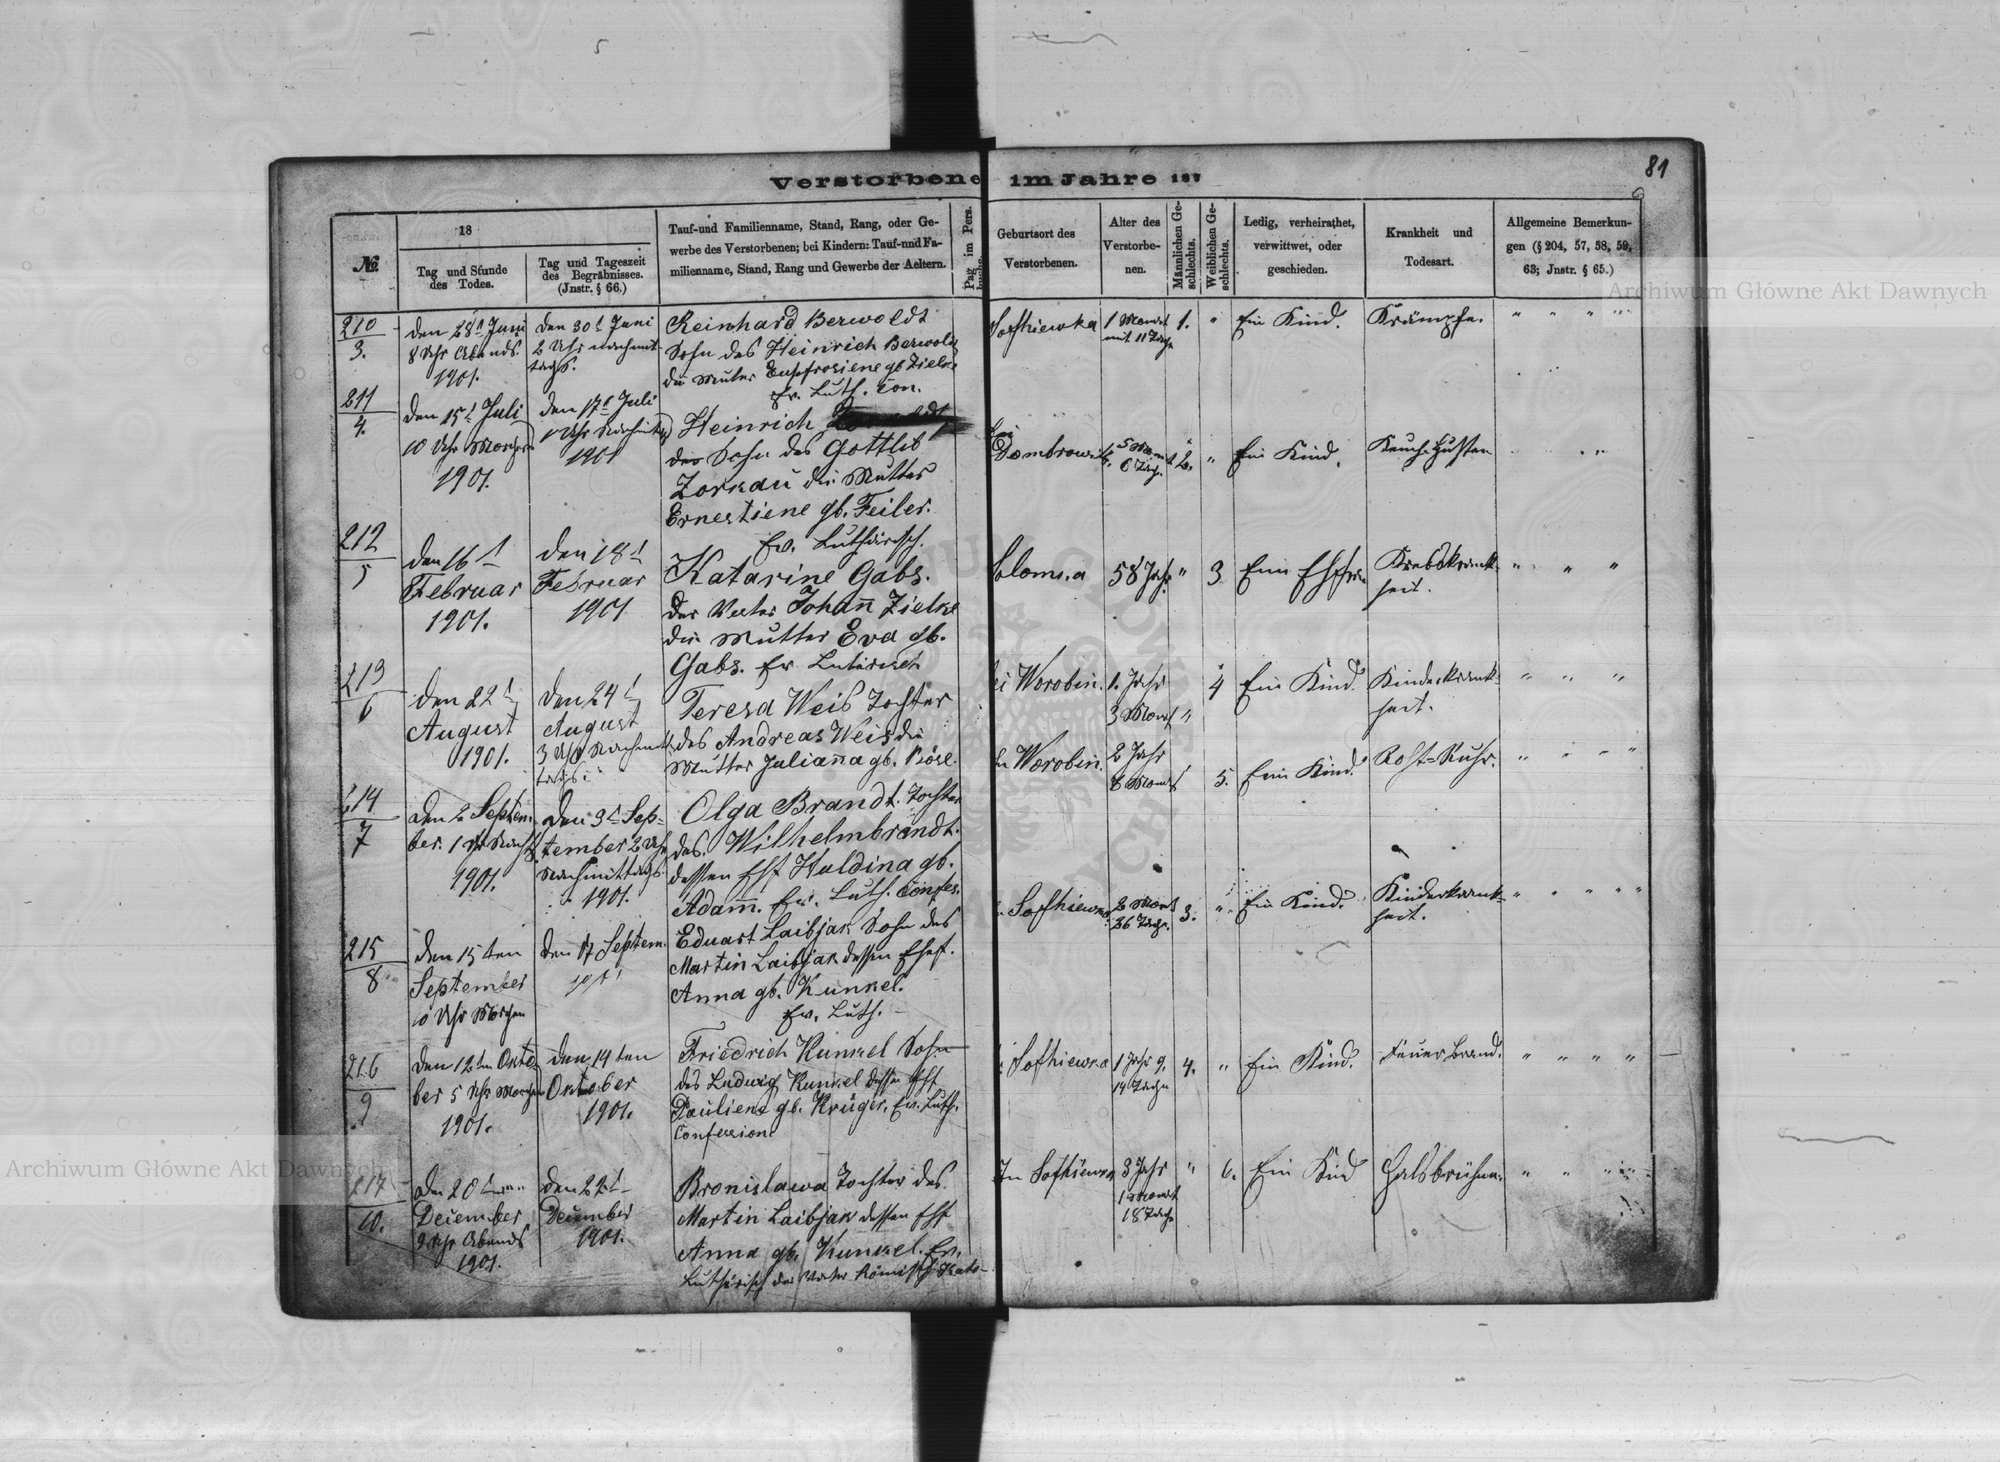 81
Verstorbene im Jahre 187
№
18
Tag und Stunde
des Todes.
Tag und Tageszeit
des Begräbnisses.
(Jnstr. § 66.)
Tauf-und Familienname, Stand, Rang, oder Ge-
werbe des Verstorbenen; bei Kindern: Tauf-und Fa-
milienname, Stand, Rang und Gewerbe der Aeltern.
Pag im Pers.
Geburtsort des
Verstorbenen.
Alter des
Verstorbe-
nen.
Männlichen Ge-
schlechts.
Weiblichen Ge-
schlechts.
Ledig, verheirathet,
verwittwet, oder
geschieden.
Krankheit und
Todesart.
Allgemeine Bemerkun-
gen (§ 204, 57, 58, 59,
63; Jnstr. § 65.)
Archiwum Główne Akt Dawnych
210
3.
den 28t Juni
8 Uhr Abends
1901.
den 30t Juni
2 Uhr nachmit
tags.
Reinhard Berwoldt
Sohn des Heinrich Berwoldt
die Muter Eupfrosiene gb Zielke
Ev. Luth. Con.
Sofhiewka
1 Monat
mit 11 Tage
1.
"
Ein Kind.
Krämpfe.
" " " "
211
4.
den 15t Juli
10 Uhr Morgen
1901.
den 17t Juli
1 Uhr Nachmittag
1901
Heinrich
des Sohn des Gottlib
Zornau die Mutter
Ernestiene gb. Feiler.
Ev. Luthärisch.
bei
Dombrowa
5 Monat
6 Tage.
2.
"
Ein Kind.
Keuch-Husten
" "
212
5
den 16t
Februar
1901.
den 18t
Februar
1901
Katarine Gabs.
Der Vater Johann Zielke
die Mutter Eva gb.
Gabs. Ev Luterisch
58 Jahr
"
3
Eine Ehefrau
Krebskrank-
heit.
" " "
213
6
den 22t
August
1901.
den 24t
August
3 Uhr Nachmit
tags.
Teresa Weis Tochter
des Andreas Weis die
Mutter Julianna gb. Röse.
Worobin.
1. Jahr
3 Monat
"
4
Ein Kind.
Kinderkrank-
heit.
" " "
214
7
den 2 Septem
ber. 1 Uhr Nacht
1901.
den 3t Sep-
tember 2 Uhr
Nachmittags
1901.
Olga Brandt. Tochter
des. Wilhelmbrandt.
dessen Ehf Huldina gb.
Adamm. Ev. Luth. Confes.
Worobin.
2 Jahr
6 Monat
5.
Ein Kind.
Roht-Ruhr.
" " " "
215
8
den 15ten
September
10 Uhr Morgen
den 17 Septem.
1901
Eduart Laibjak Sohn des
Martin Laibjak dessen Ehef.
Anna gb. Kunkel.
Ev. Luth.
Sofhiewka
2 Monat
26 Tage.
3.
"
Ein Kind.
Kinderkrank-
heit.
" " " " "
216
9
den 12ten Okto
ber 5 Uhr Morgen
1901.
den 14ten
Oktober
1901.
Friedrich Kunkel Sohn
des Ludwig Kunkel dessen Ehf
Pauliene gb. Krüger. Ev. Luth.
Confession.
Sofhiewka
1 Jahr 9.
14 Tage
4.
"
Ein Kind.
Feuer Brand.
" " " "
217
10.
den 20t
December
9 Uhr Abends
1901.
den 22t
December
1901.
Bronislawa Tochter des.
Martin Laibjak dessen Ehf
Anna gb. Kunkel. Ev.
Luthärisch der Vater Römisch Kato-
In Sofhiewka
3 Jahr
1 Monat
18 Tage
"
6.
Ein Kind
Halsbrühne.
" " " "
Archiwum Główne Akt Dawnych